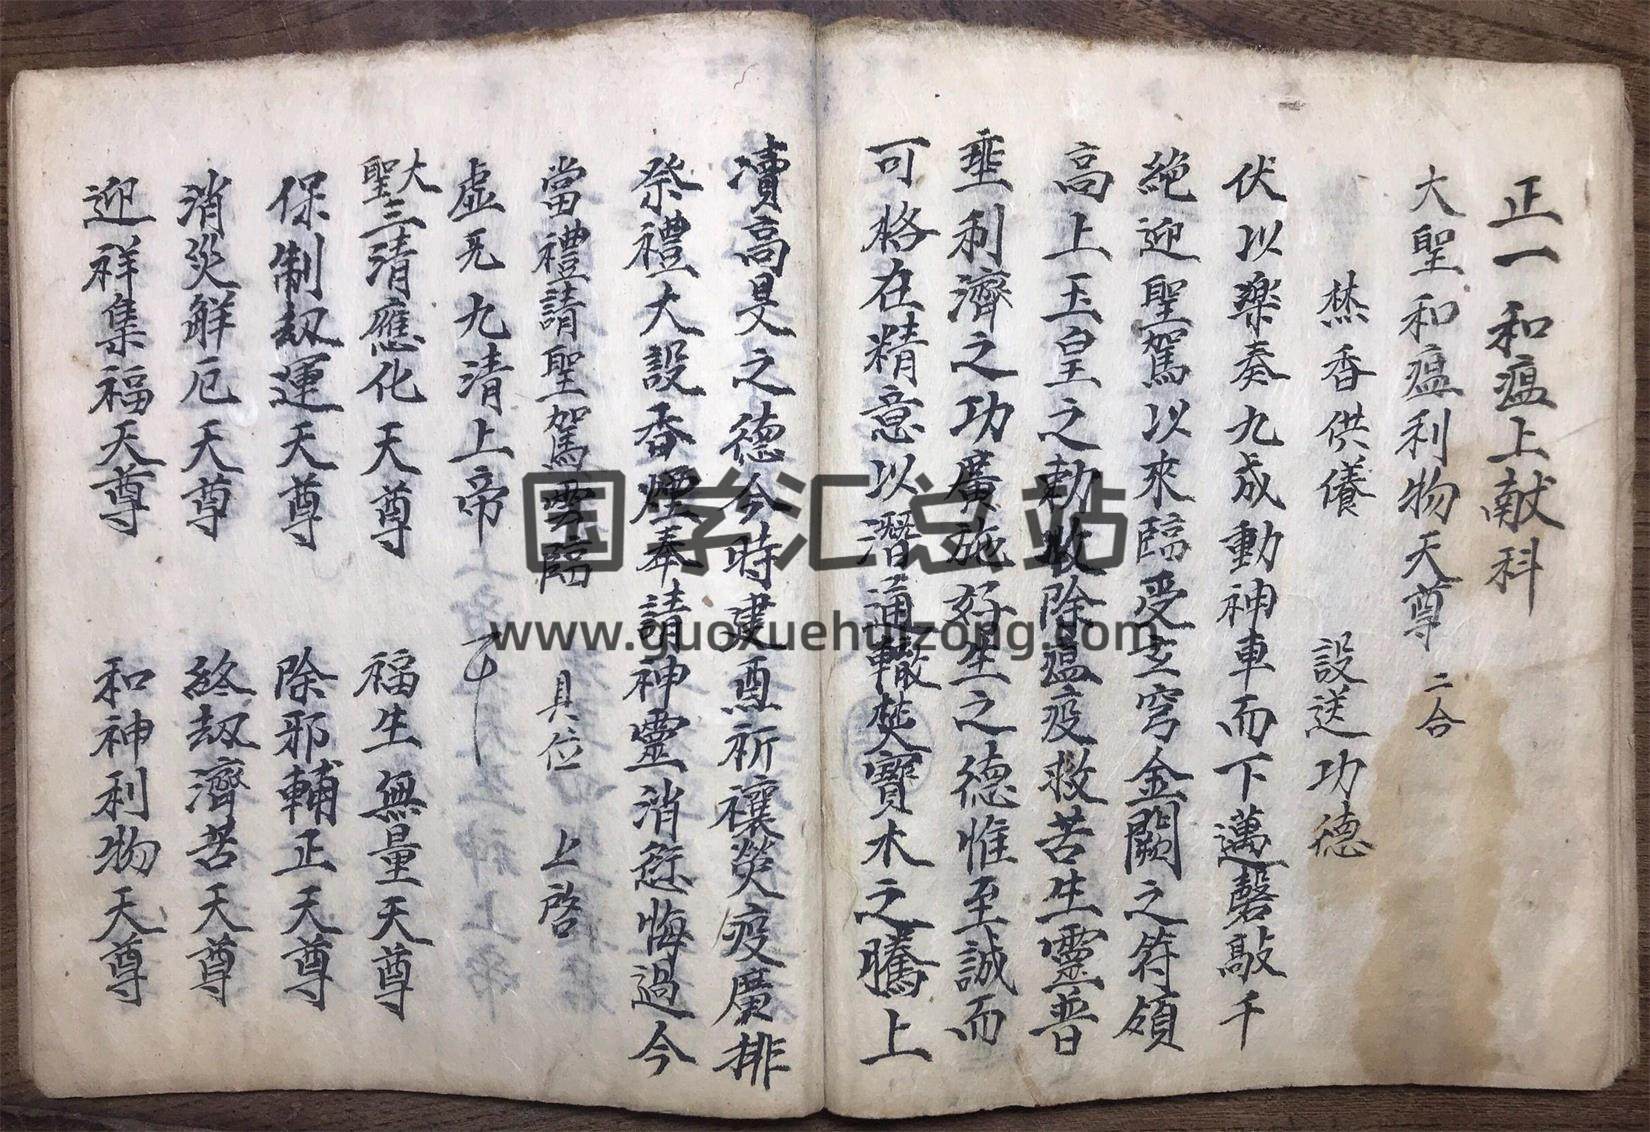 正一和瘟上献科
大聖和瘟利物天尊 二合
焚香供養 設送功德
伏以樂奏九成動神車而下邁磬敲千
絶迎聖駕以來臨受玄穹金闕之符領
高上玉皇之勅收除瘟疫救苦生靈普
垂利濟之功廣施好生之德惟至誠而
可格在精意以潛通轍焚寳木之騰上
凟高旻之德今時建奠祈禳熒疫廣排
祭禮大設香煙奉請神靈消愆悔過今
當禮請聖駕雲臨 具位 上啓
虚无九清上帝
大聖三清應化天尊 福生無量天尊
保制刼運天尊 除邪輔正天尊
消災觧厄天尊 終刼濟苦天尊
迎祥集福天尊 和神利物天尊
国学汇总站
www.guoxuehuizong.com